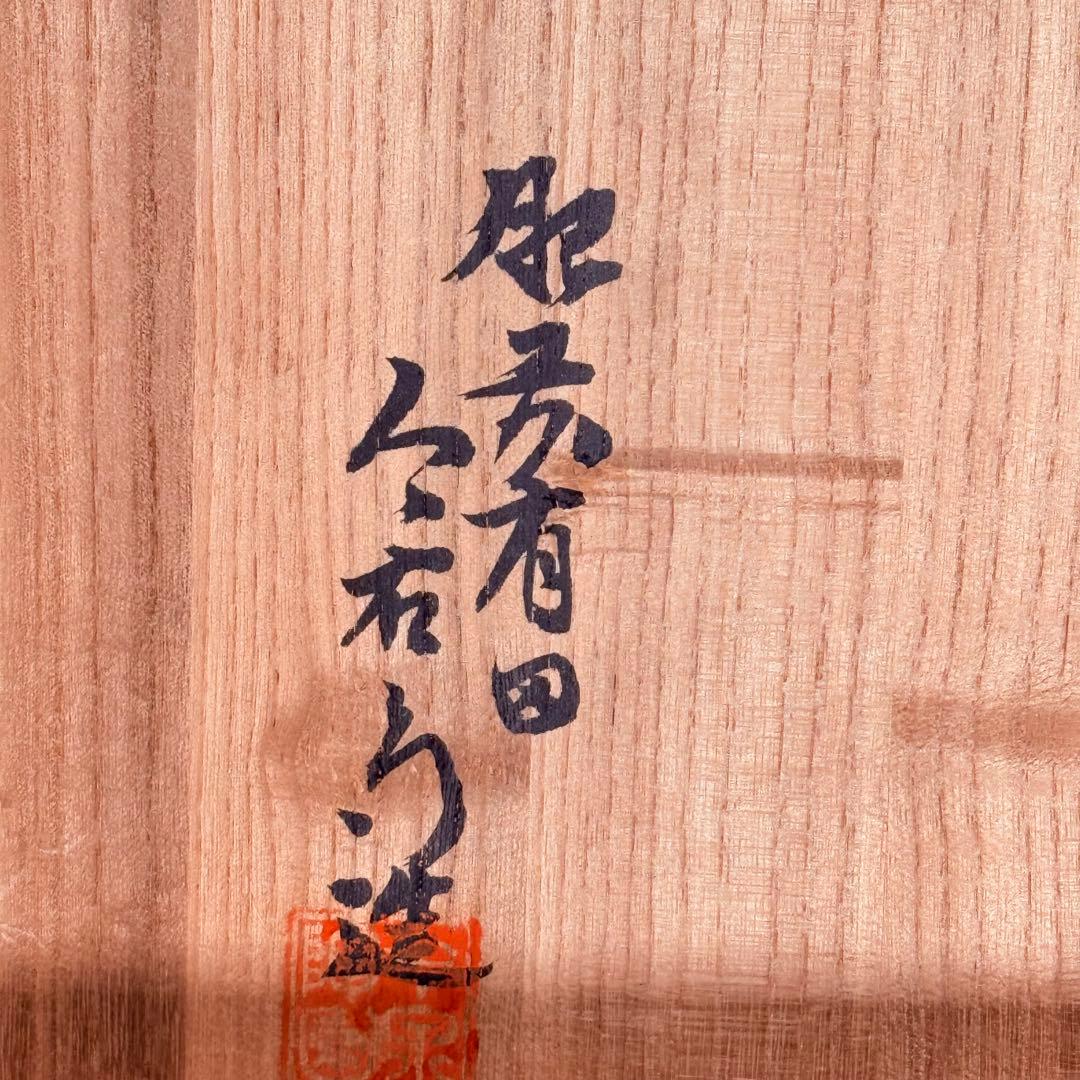 肥前有田
今右衛門造